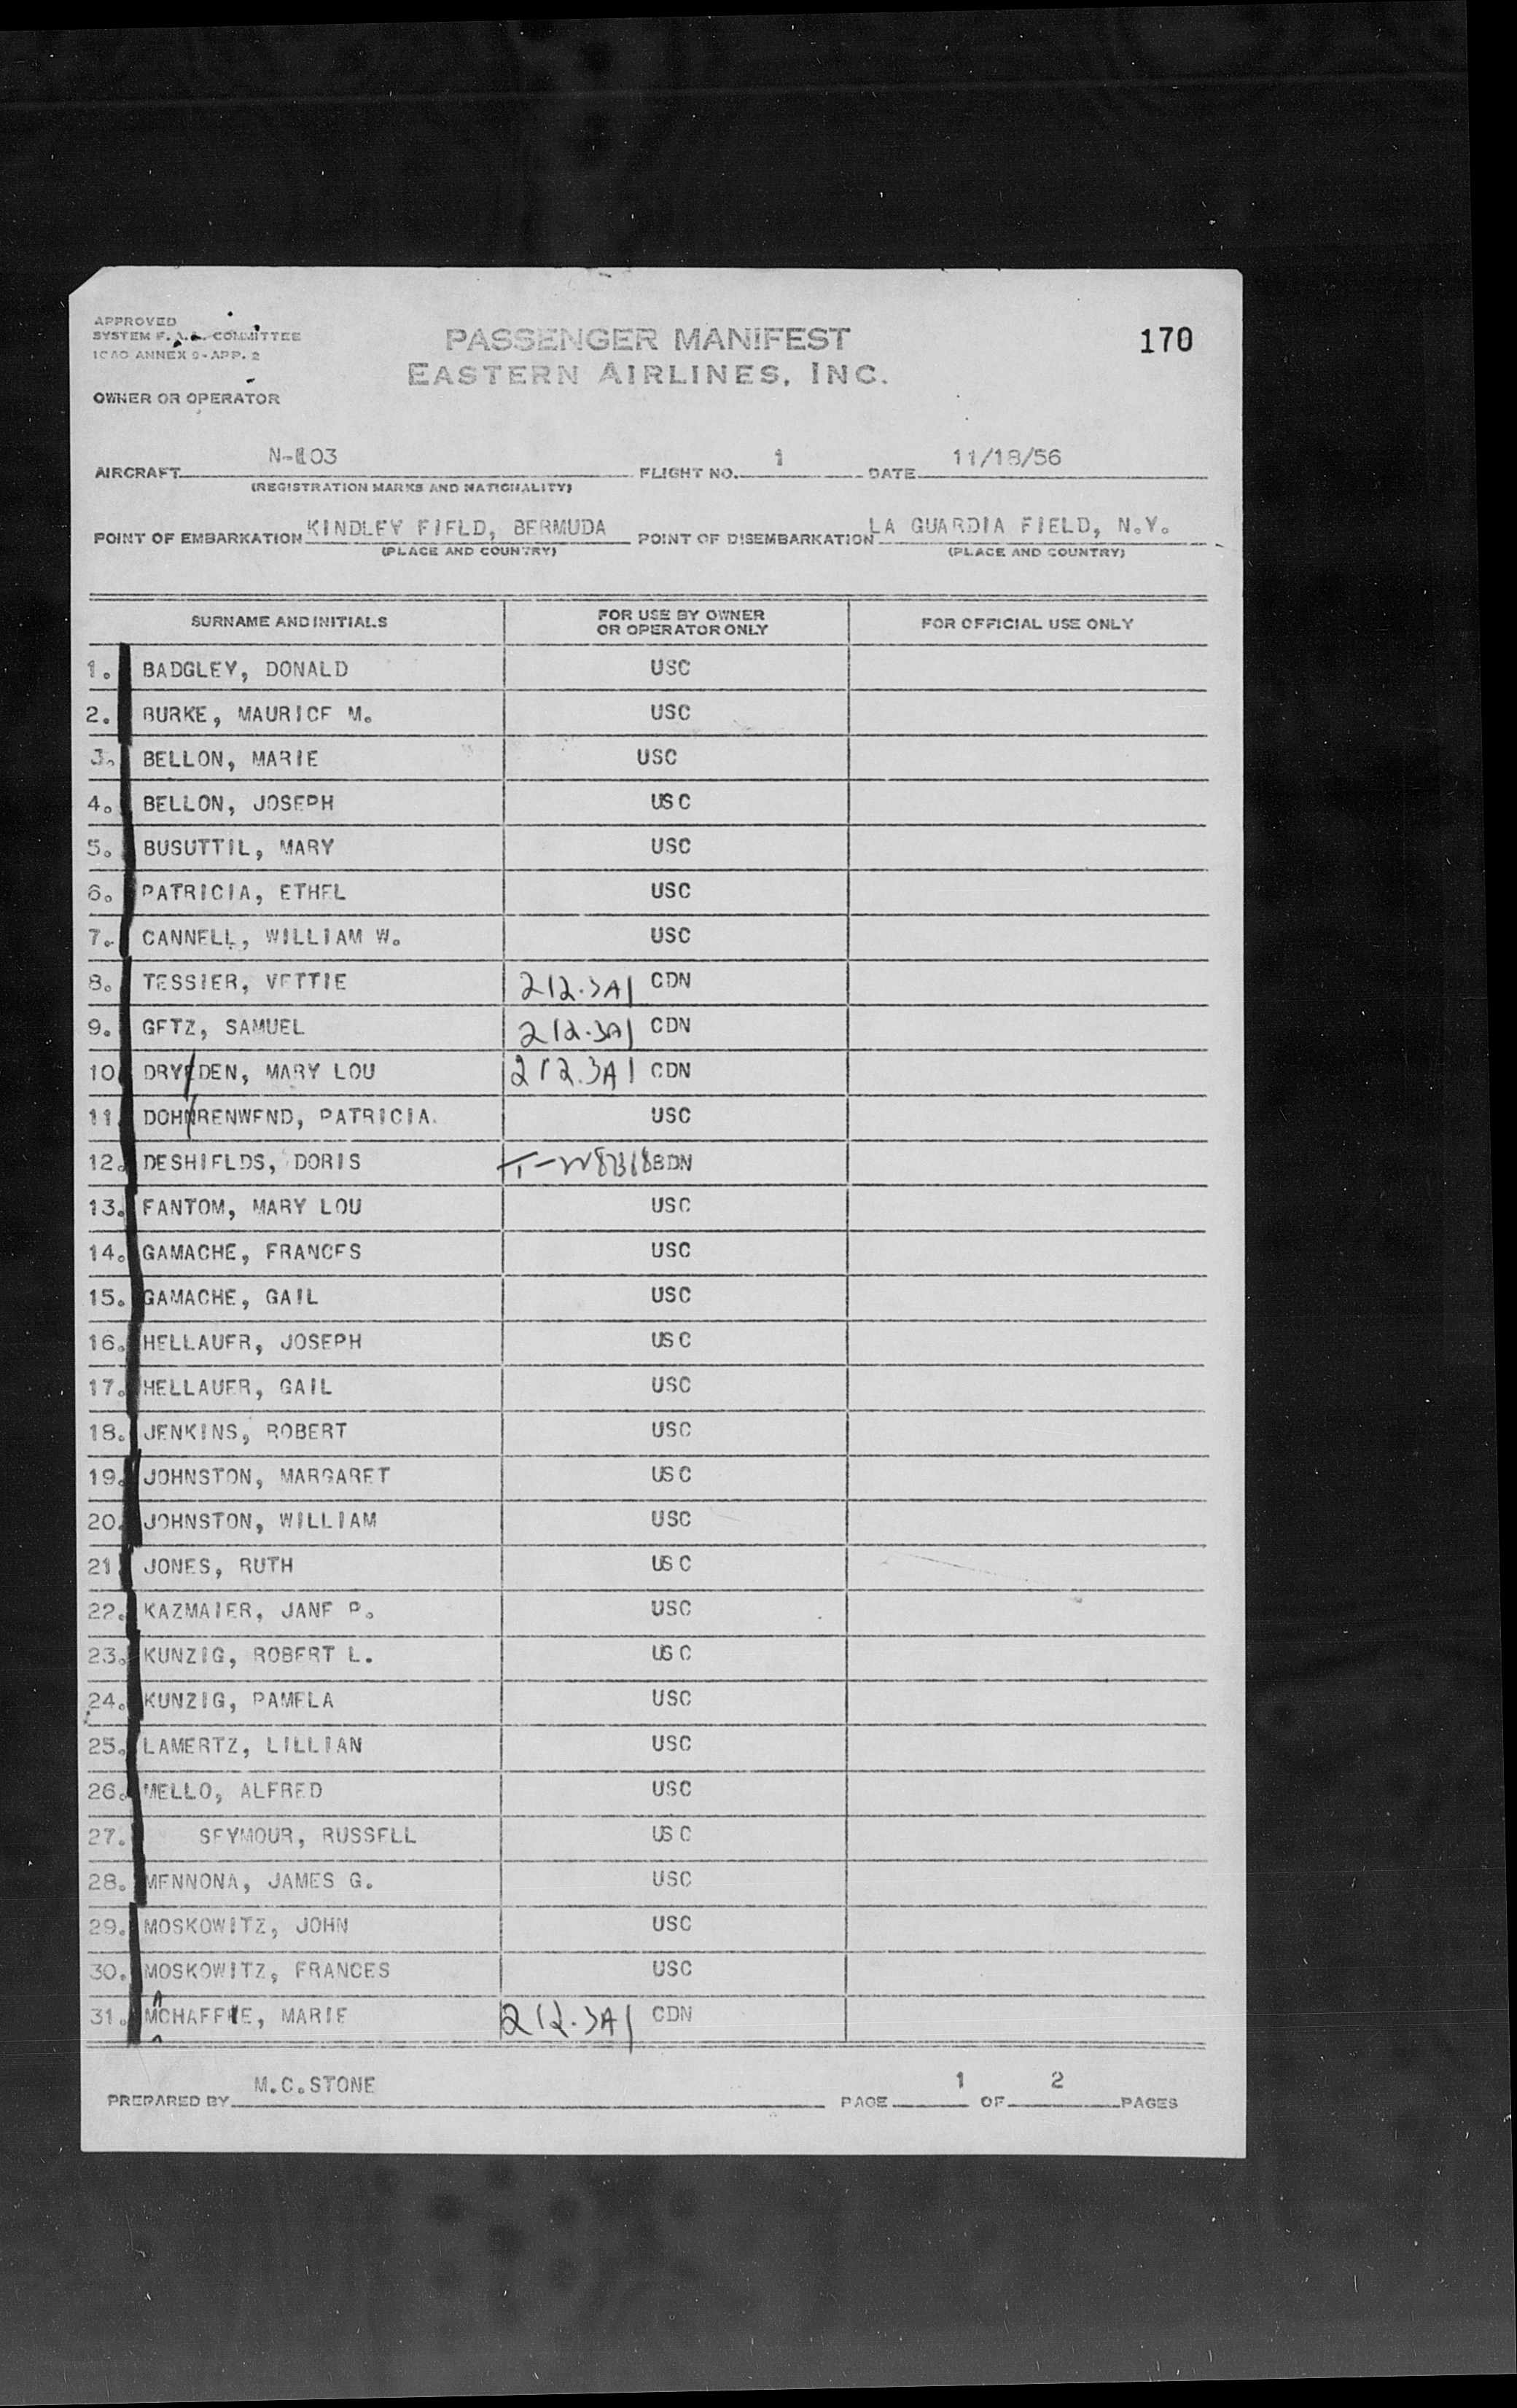 APPROVED
SYSTEM F.A.L. COMMITTEE
ICAO ANNEX 9-APP. 2
PASSENGER MANIFEST
EASTERN AIRLINES, INC.
170
OWNER OR OPERATOR
AIRCRAFT N-103 FLIGHT NO. 1 DATE 11/18/56
(REGISTRATION MARKS AND NATIONALITY)
POINT OF EMBARKATION KINDLEY FIELD, BERMUDA POINT OF DISEMBARKATION LA GUARDIA FIELD, N.Y.
(PLACE AND COUNTRY) (PLACE AND COUNTRY)
SURNAME AND INITIALS FOR USE BY OWNER OR OPERATOR ONLY FOR OFFICIAL USE ONLY
1. BADGLEY, DONALD USC
2. BURKE, MAURICE M. USC
3. BELLON, MARIE USC
4. BELLON, JOSEPH USC
5. BUSUTTIL, MARY USC
6. PATRICIA, ETHEL USC
7. CANNELL, WILLIAM W. USC
8. TESSIER, VETTIE 212.3A1 CDN
9. GETZ, SAMUEL 212.3A1 CDN
10. DRYDEN, MARY LOU 212.3A1 CDN
11. DOHRENWEND, PATRICIA. USC
12. DESHIELDS, DORIS BDN
13. FANTOM, MARY LOU USC
14. GAMACHE, FRANCES USC
15. GAMACHE, GAIL USC
16. HELLAUER, JOSEPH USC
17. HELLAUER, GAIL USC
18. JENKINS, ROBERT USC
19. JOHNSTON, MARGARET USC
20. JOHNSTON, WILLIAM USC
21. JONES, RUTH USC
22. KAZMAIER, JANE P. USC
23. KUNZIG, ROBERT L. USC
24. KUNZIG, PAMELA USC
25. LAMERTZ, LILLIAN USC
26. MELLO, ALFRED USC
27. SEYMOUR, RUSSELL USC
28. MENNONA, JAMES G. USC
29. MOSKOWITZ, JOHN USC
30. MOSKOWITZ, FRANCES USC
31. MCHAFFIE, MARIE 212.3A1 CDN
PREPARED BY M.C.STONE PAGE 1 OF 2 PAGES